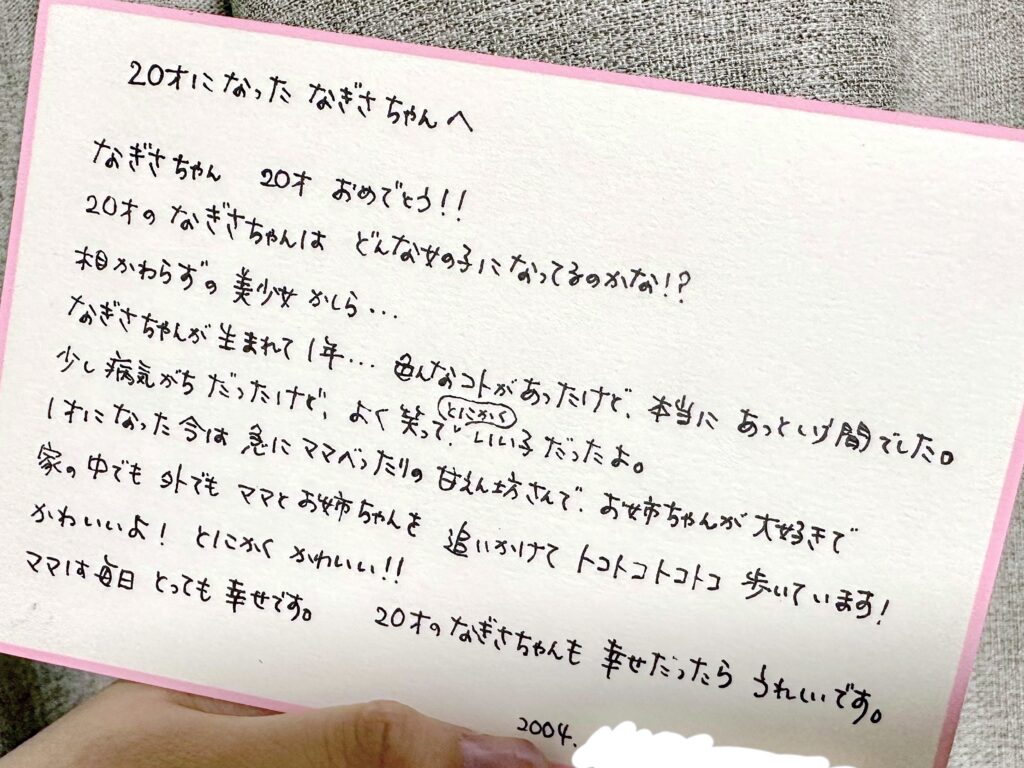 20才になった なぎさちゃんへ
なぎさちゃん 20才 おめでとう!!
20才の なぎさちゃんは どんな女の子になってるのかな!?
相かわらずの 美少女 かしら...
なぎさちゃんが 生まれて 1年... 色んなコトがあったけど、本当に あっという間でした。
少し 病気がち だったけど、よく 笑って、とにかく いい子 だったよ。
1才になった 今は 急に ママべったりの 甘えん坊さんで、お姉ちゃんが 大好きで
家の 中でも 外でも ママと お姉ちゃんを 追いかけて トコトコトコトコ 歩いています!
かわいいよ! とにかく かわいい!!
ママは 毎日 とっても 幸せです。 20才の なぎさちゃんも 幸せだったら うれしいです。
2004.